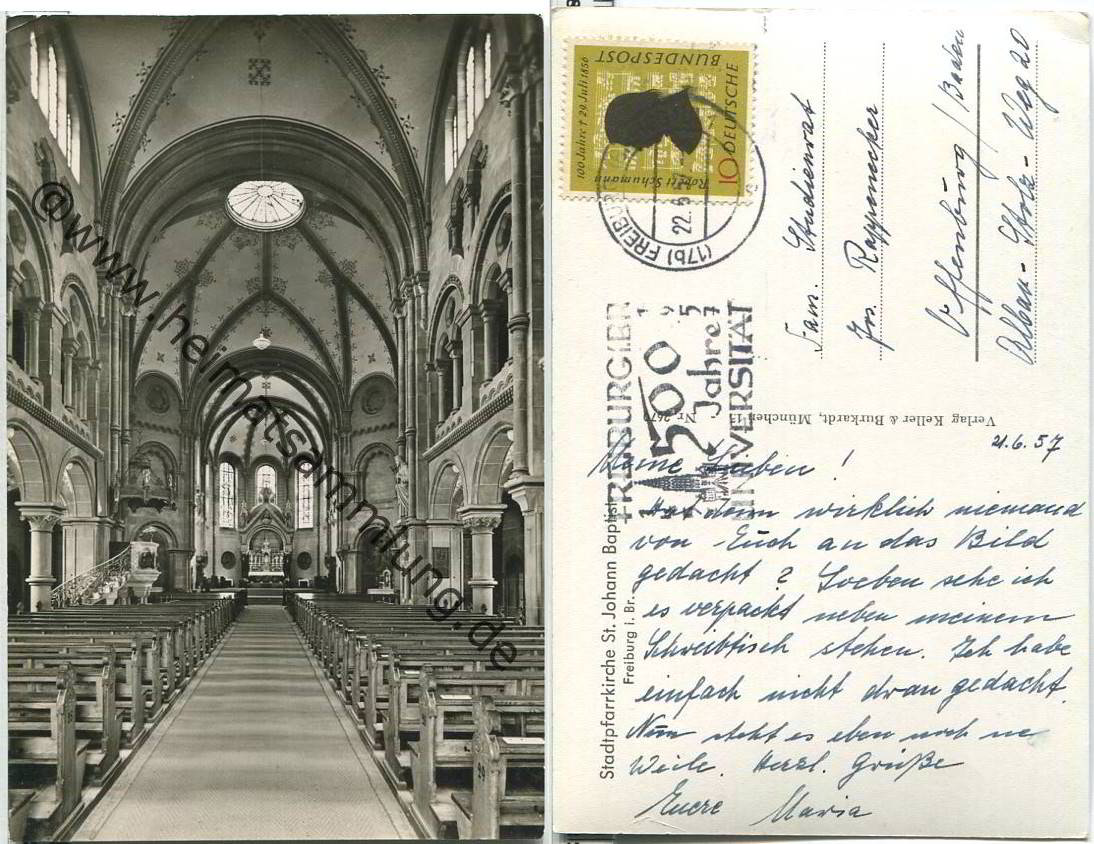 @www.heimatsammlung.de
29
DEUTSCHE
BUNDESPOST
10
100 Jahre † 29. Juli 1856
Robert Schumann
(17b) FREIBURG
22.
FREIBURG i. BR.
500
1957
Jahre
UNIVERSITÄT
Fam. Studienrat
Jos. Rappenecker
Offenburg / Baden
Alban-Stolz-Weg 20
Verlag Keller & Burkardt, München 15
Stadtpfarrkirche St. Johann Baptist
Freiburg i. Br.
21.6.57
Meine Lieben!
Hat denn wirklich niemand
von Euch an das Bild
gedacht? Soeben sehe ich
es verpackt neben meinem
Schreibtisch stehen. Ich habe
einfach nicht dran gedacht.
Nun steht es eben noch ne
Weile. Herzl. Grüße
Euere Maria